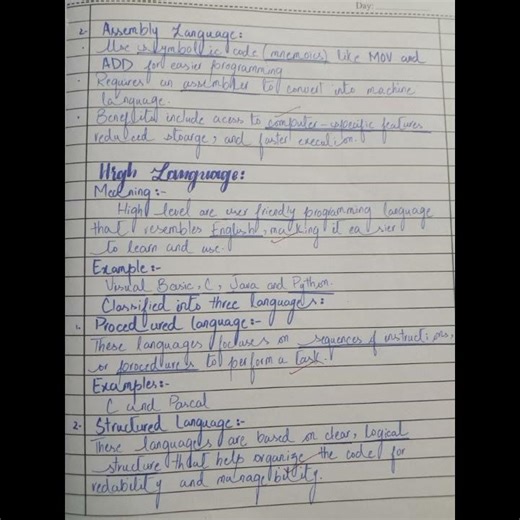 Day:
2. Assembly Language:
· Use symbolic code (mnemoics) like MOV and
ADD for easier programming
· Requires an assembler to convert into machine
language.
· Benefits include acess to computer-specific features
reduced stoarge, and faster execution.
High Language:
Meaning:-
High level are user friendly programming language
that resembles English, making it easier
to learn and use.
Example:-
Visual Basic, C, Java and Python.
Classified into three languages:
1. Procedured language:-
These languages focuses on sequences of instructions,
or procedures to perform a task.
Examples:-
C and Pascal
2. Structured Language:-
These languages are based on clear, logical
structure that help organize the code for
redability and managebility.